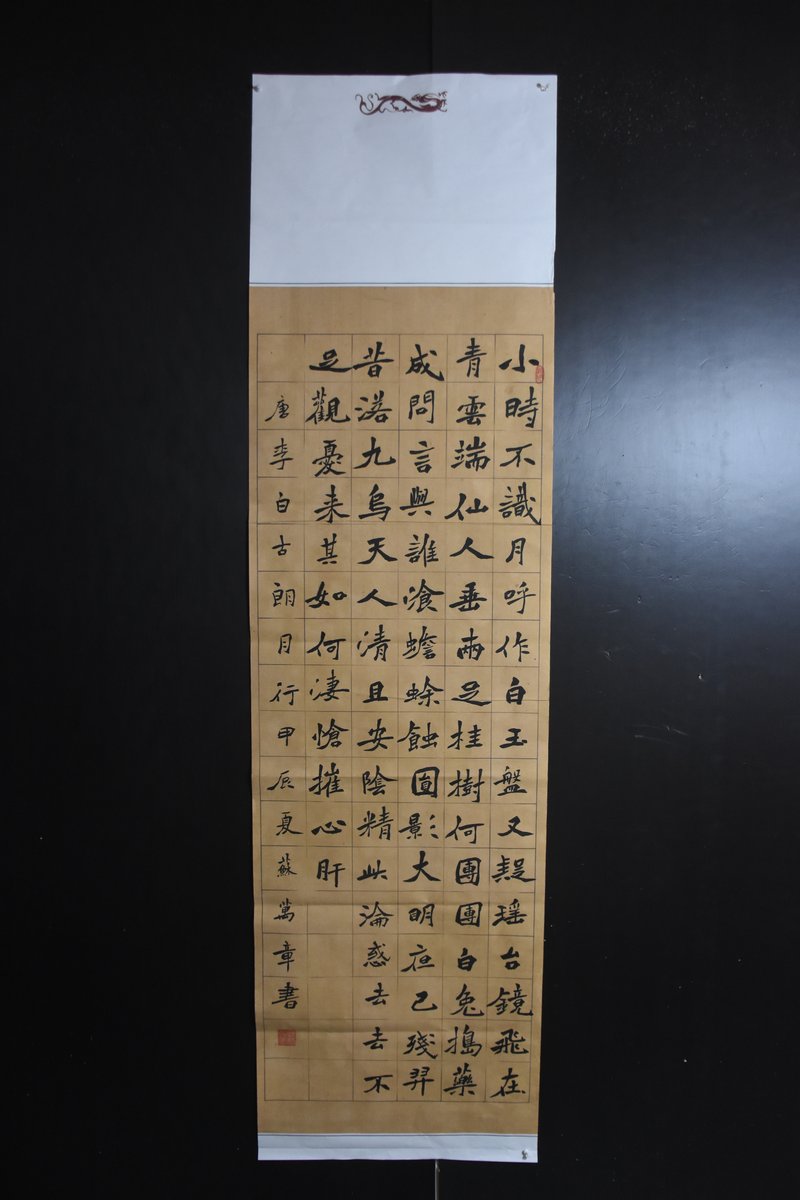 小時不識月呼作白玉盤又疑瑶台鏡飛在
青雲端仙人垂兩足桂樹何團團白兔搗藥
成問言與誰飡蟾蜍蝕圓影大明夜已殘羿
昔落九烏天人清且安陰精此淪惑去去不
足觀憂来其如何淒愴摧心肝
唐李白古朗月行甲辰夏蘇萬章書